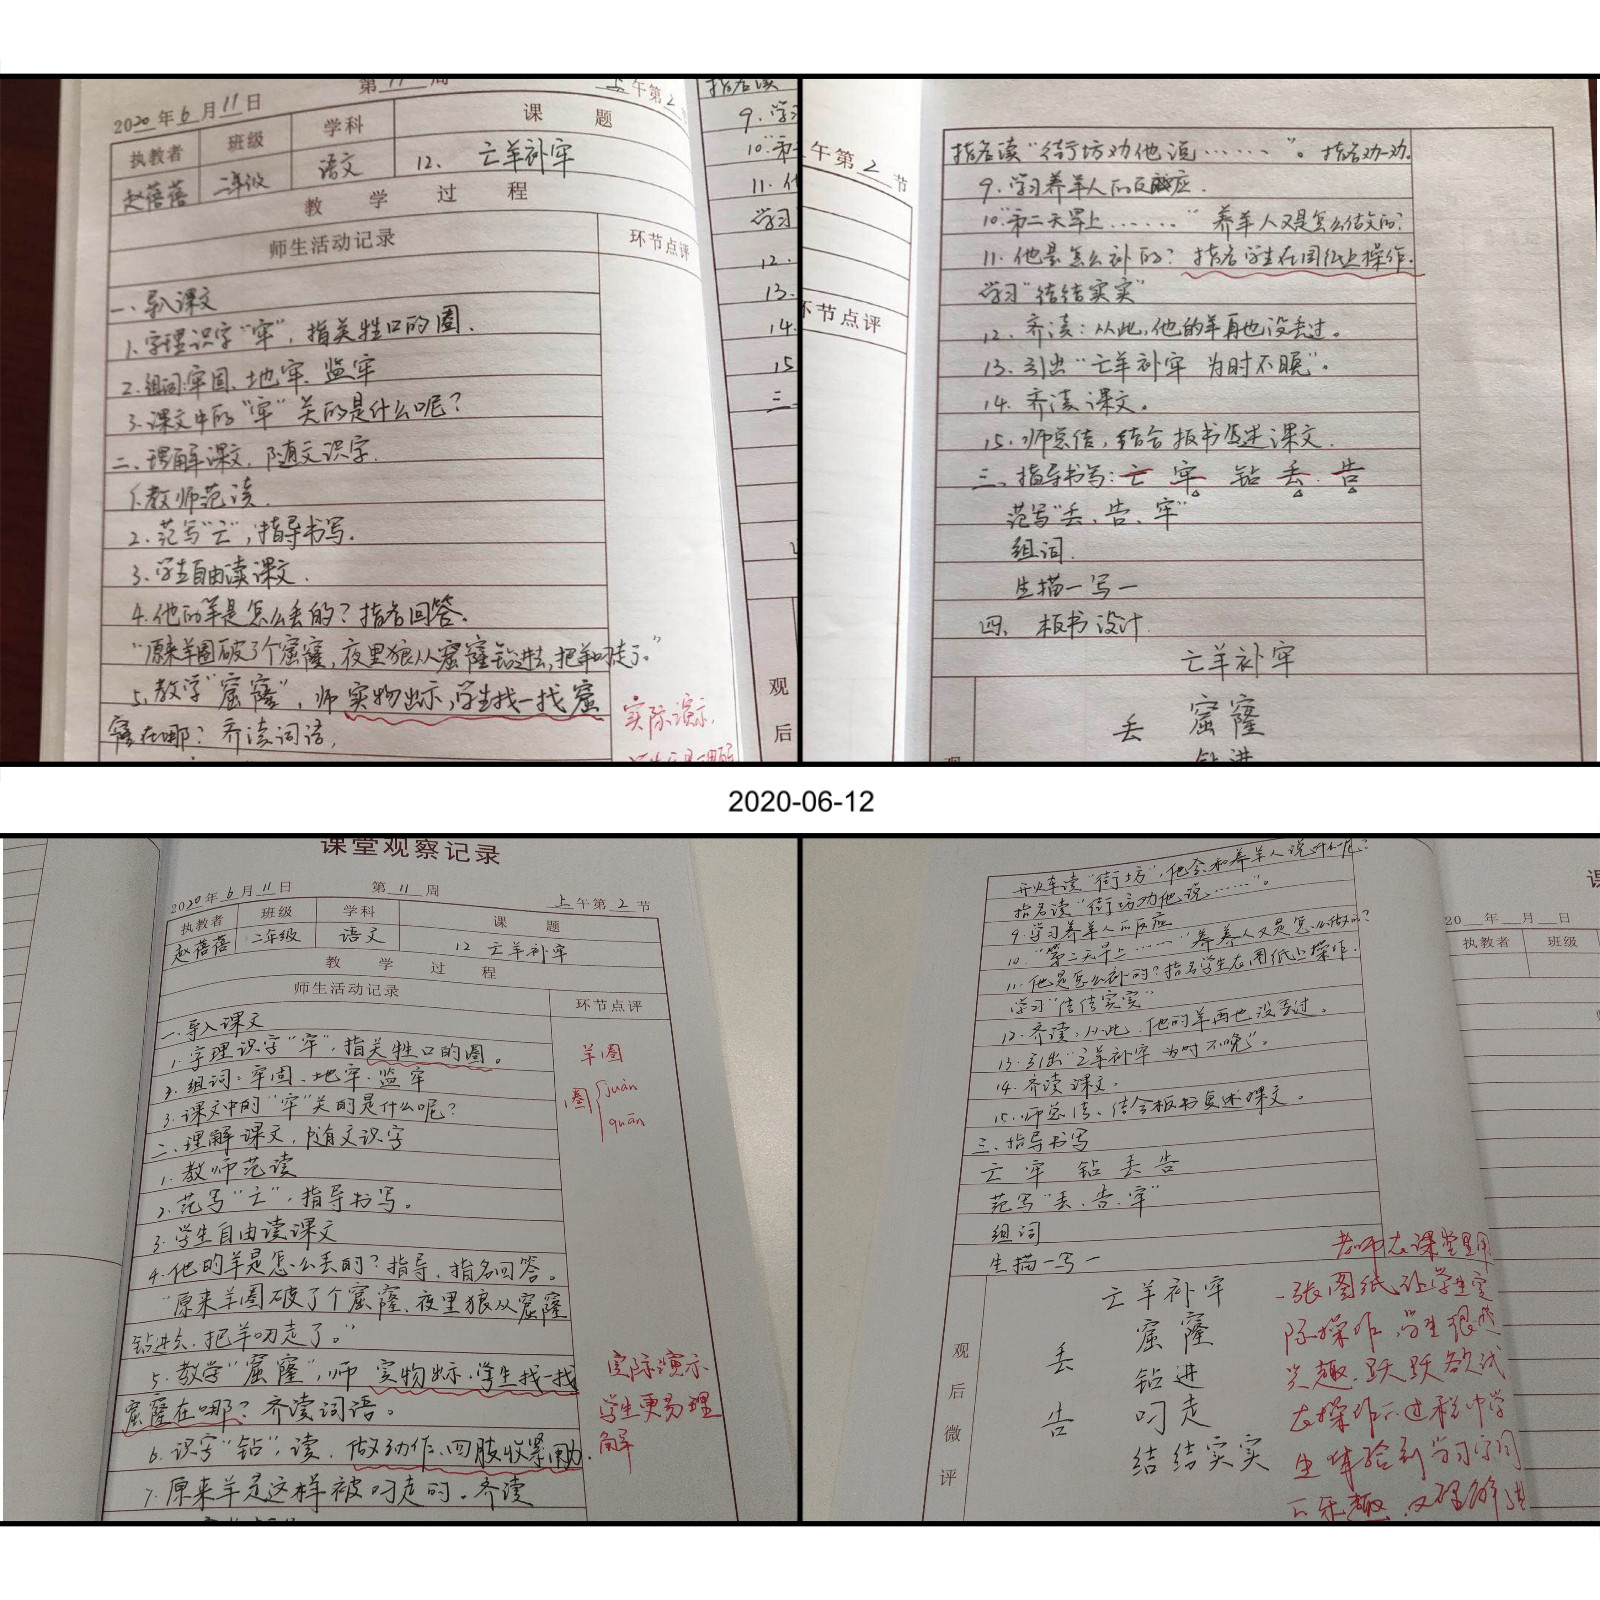 2020年6月11日 第11周 上午第2节
执教者 班级 学科 课题
赵蓓蓓 二年级 语文 12. 亡羊补牢
教学过程
师生活动记录 环节点评
一、导入课文
1.字理识字“牢”，指关牲口的圈.
2.组词:牢固、地牢、监牢
3.课文中的“牢”关的是什么呢？
二、理解课文，随文识字.
1.教师范读.
2.范写“亡”，指导书写.
3.学生自由读课文.
4.他的羊是怎么丢的？指名回答.
“原来羊圈破了个窟窿，夜里狼从窟窿钻进去，把羊叼走了.”
5.教学“窟窿”，师实物出示，学生找一找窟
窿在哪？齐读词语，
实际演示，
指名读
9.学习
10.“第
11.他
学习
12.
13.
14.
15
三、
观
后
午第2节
环节点评
指名读“街坊劝他说……”。指名劝一劝.
9.学习养羊人的反应.
10.“第二天早上……”养羊人又是怎么做的？
11.他是怎么补的？指名学生在图纸上操作.
学习“结结实实”
12.齐读：从此，他的羊再也没丢过。
13.引出“亡羊补牢 为时不晚”。
14.齐读课文。
15.师总结，结合板书复述课文.
三、指导书写：亡 牢 钻 丢 告
范写“丢、告、牢”
组词.
生描一写一
四、板书设计
亡羊补牢
丢 窟窿
钻进
观
2020-06-12
课堂观察记录
2020年6月11日 第11周 上午第2节
执教者 班级 学科 课题
赵蓓蓓 二年级 语文 12 亡羊补牢
教学过程
师生活动记录 环节点评
一、导入课文
1.字理识字“牢”，指关牲口的圈。
羊圈
2.组词：牢固、地牢、监牢
圈 juàn
quān
3.课文中的“牢”关的是什么呢？
二、理解课文，随文识字
1.教师范读
2.范写“亡”，指导书写。
3.学生自由读课文
4.他的羊是怎么丢的？指导，指名回答。
“原来羊圈破了个窟窿，夜里狼从窟窿
钻进去，把羊叼走了。”
5.教学“窟窿”，师实物出示，学生找一找
窟窿在哪？齐读词语。
实际演示
学生更易理
解
6.识字“钻”，读，做动作，四肢收紧用力.
7.原来羊是这样被叼走的。齐读
开火车读“街坊”，他会和养羊人说什么呢？
指名读“街坊劝他说……”。
9.学习养羊人的反应
10.“第二天早上……”养羊人又是怎么做的？
11.他是怎么补的？指名学生在图纸上操作.
学习“结结实实”
12.齐读，从此，他的羊再也没丢过。
13.引出“亡羊补牢 为时不晚”。
14.齐读课文。
15.师总结、结合板书复述课文。
三、指导书写
亡 牢 钻 丢 告
范写“丢、告、牢”
组词
生描一写一
观后微评
亡羊补牢
窟窿
丢
钻进
告 叼走
结结实实
老师在课堂里用
一张图纸让学生实
际操作，学生很感
兴趣，跃跃欲试
在操作的过程中学
生体验到学习字词
的乐趣，又理解
20 年 月 日
执教者 班级